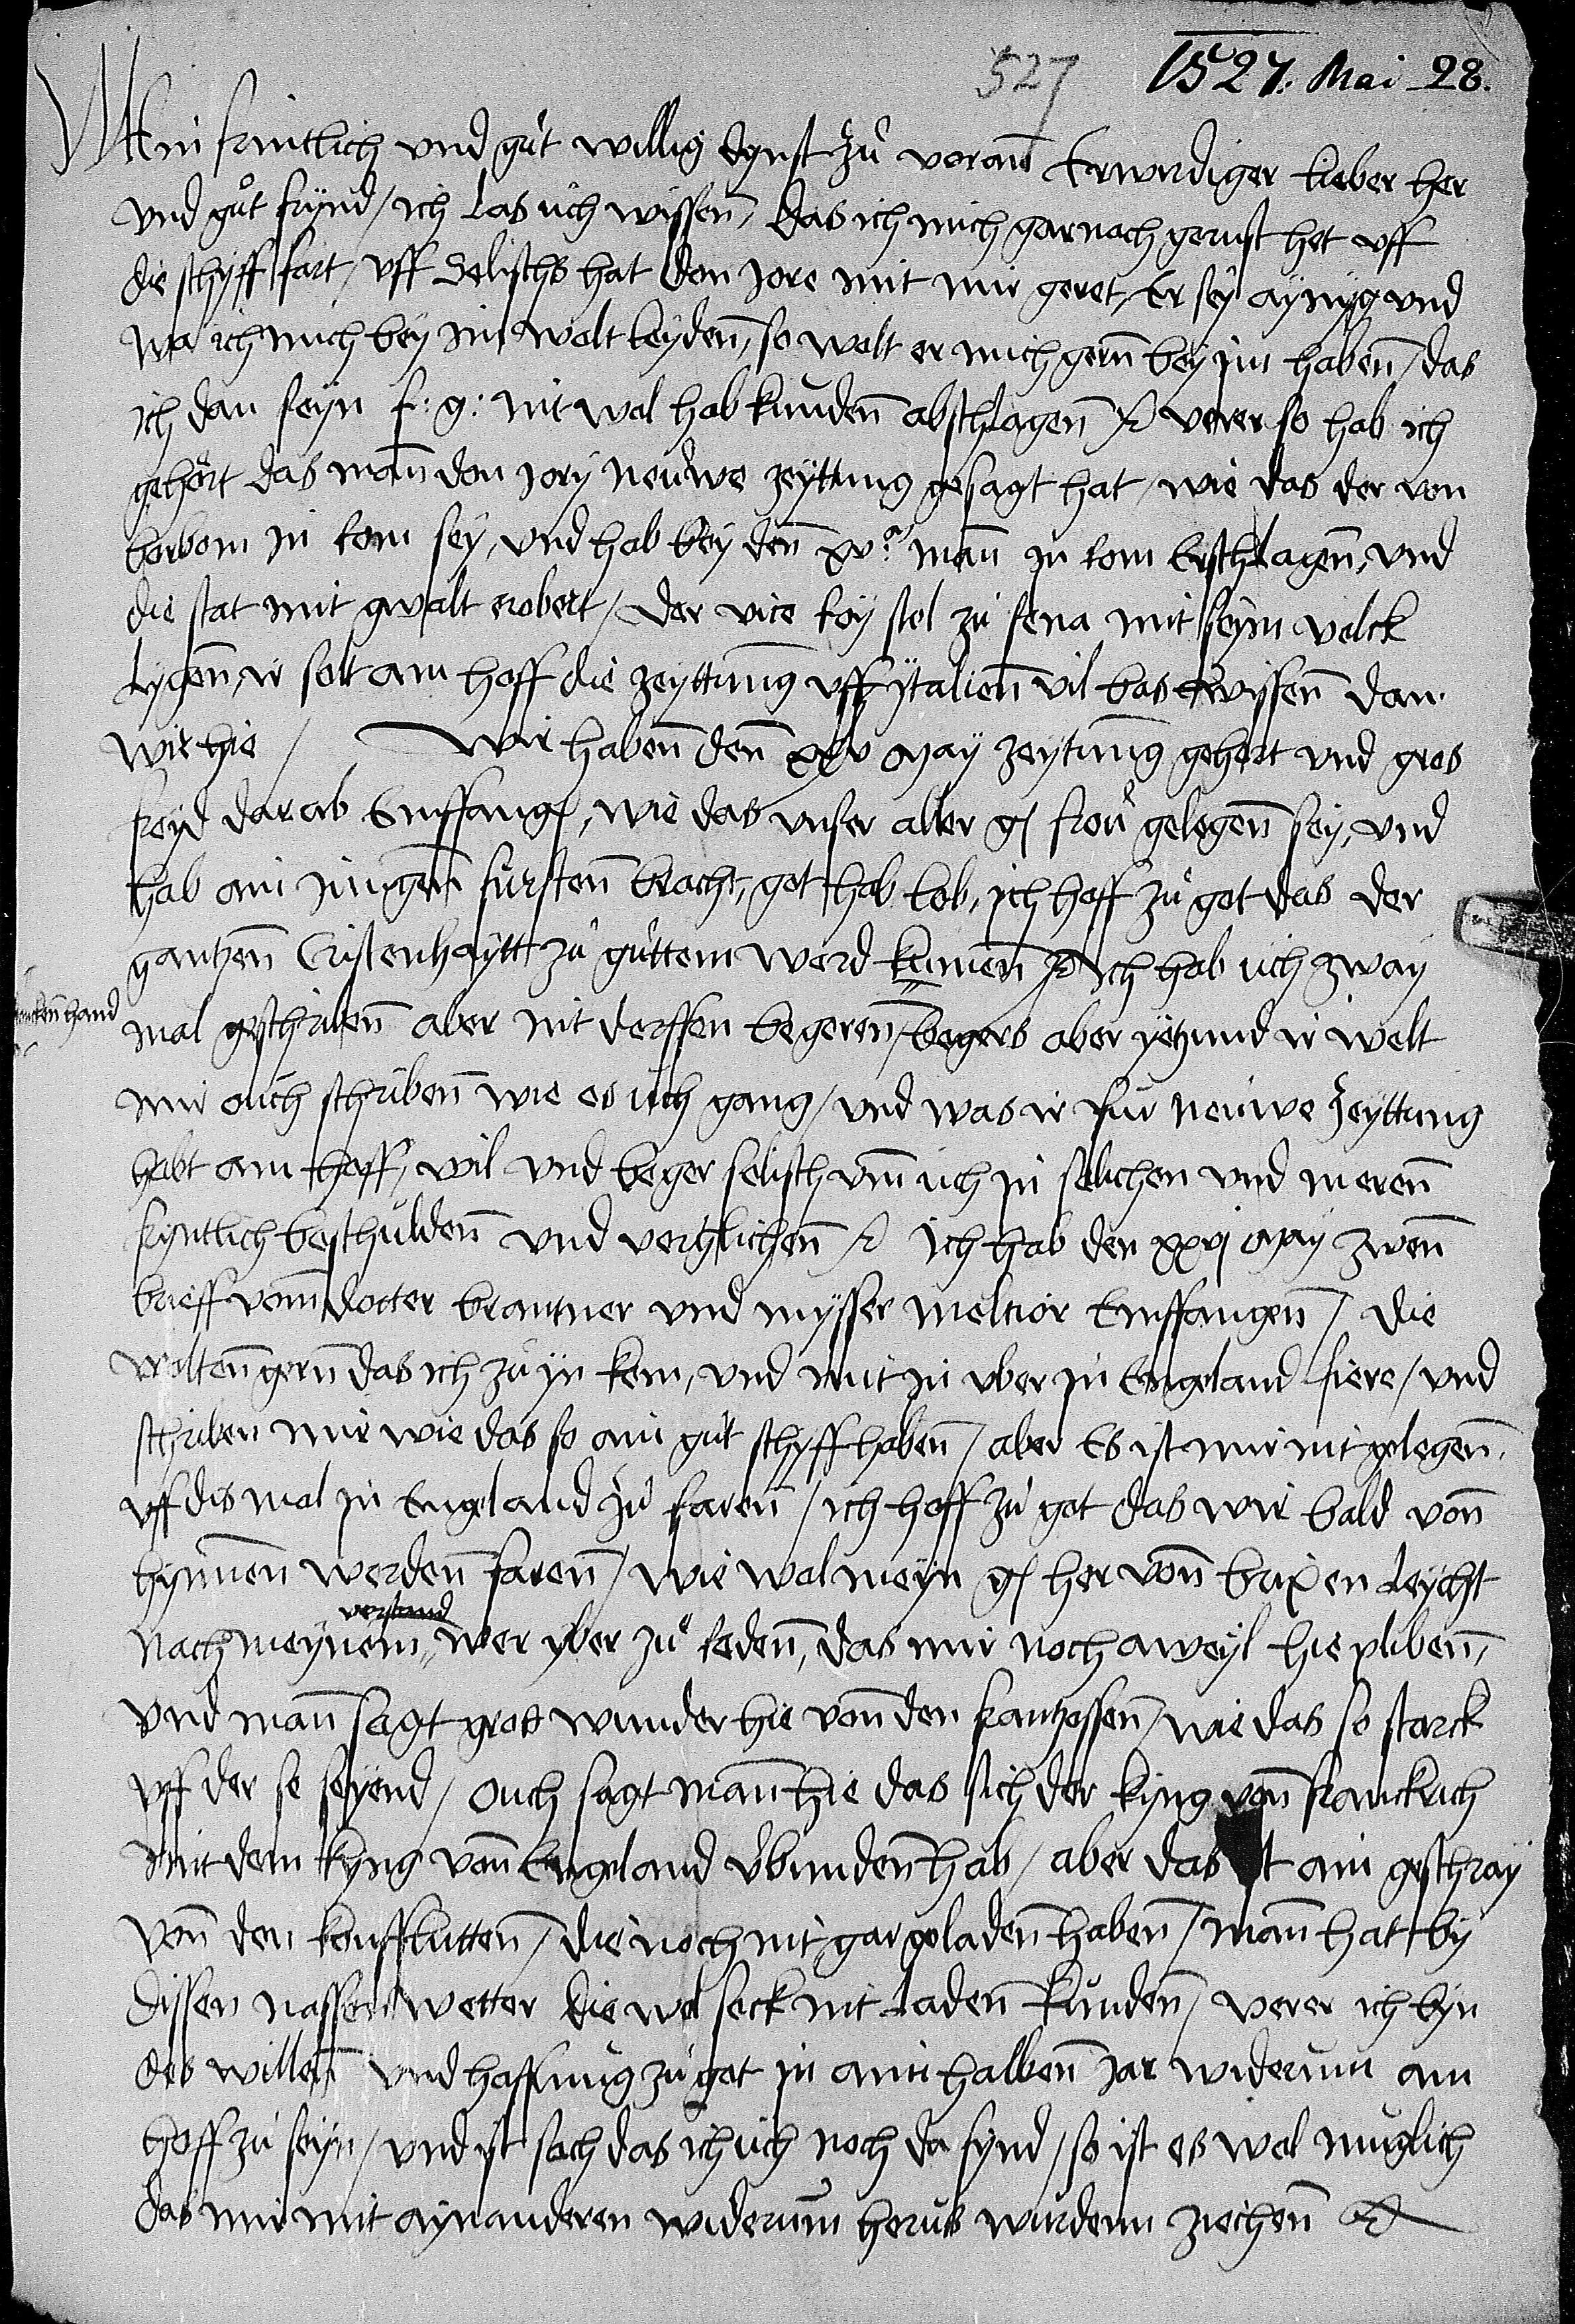 527 1527. Mai 28.
Mein frintlich und gůt willig dynst zů vorann Erwirdiger lieber her
und gůt frynd / ich las uch wissen, das ich mich gar nach gerust het uff
die schyff fart / uff selischs hat don Jore mit mir geret, Er sey aynyg und
wa ich mich bey im welt leyden, so welt er mich gern bey im haben / das
ich dan seyn f: g: nit wol hab kunden abschlagen verer so hab ich
gehört das mann don Jory neuwe zeyttung gesagt hat / wie das der von
borbom in rom sey, und hab bey den xv mann in rom erschlagen, und
die stat mit gwalt erobert / der vice roy sol zu sena mit seym volck
lygen, ir solt am hoff die zeyttung uss ytalien vil bas wissen dan
wir hie / Wir haben den xxv may zeytung gehort und gros
freyd darab emffangen, wie das unser aller g frou gelegen sey, und
hab ain jungen fursten bracht, got hab lob, ich hoff zu got das der
gantzen Cristenhaytt zu guttem werd kumen ich hab uch zway
mal geschriben aber nit derffen begeren / begers aber yetzund ir welt
mir ouch schriben wie es uch gang / und was ir fur neuwe zeyttung
habt am hoff, wil und beger selisch um uch in selichen und meren
fryntlich beschulden und verglichen ich hab den xxvj may zwen
brieff vom docter brantner und mysser melcior emffangen / die
wolten gern das ich zu yn kem, und mit in uber in Engeland fiere / und
schriben mir wie das so ain gut schyff haben / aber Es ist mir nit gelegen
uff dis mal in Engeland zu faren / ich hoff zu got das wir bald von
hynnen werden faren / wie wol meyn g her von brixen leycht
verstand
nach meynem wer yber zu reden, das mir noch a weyl hie pliben,
und mann sagt gros wunder hie von den frantzossen / wie das so starck
uff der se seyend / ouch sagt mann hie das sich der kyng von franckrich
mit dem kyng von Engeland verbunden hab / aber das ist ain geschray
von den koufflutten / die noch nit gar geladen haben / mann hat by
dissen nassen wetter die wol seck nit laden kunden / verer ich byn
des willen und hoffnung zu got in aim halben jar widerum am
hoff zu seyn / und ist sach das ich uch noch da fynd / so ist es wol muglich
das mir mit aynanderen widerum herus wurden ziechen